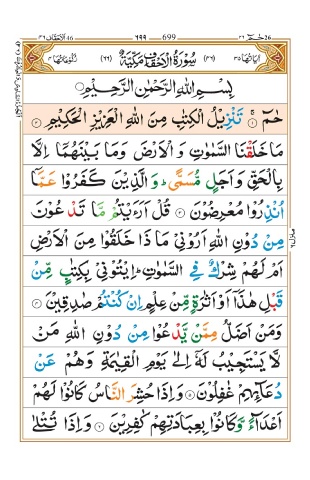 ٤٦ الاحقاف ٤٦ ٦٩٩ 699 حٰمٓ ٢٦ 26
اٰيَاتُهَا ٣٥ (٤٦) سُوْرَةُ الْاَحْقَافِ مَكِّيَّةٌ (٦٦) رُكُوْعَاتُهَا ٤
بِسْمِ اللّٰهِ الرَّحْمٰنِ الرَّحِيْمِ
حٰمٓ ۚ ۱ تَنْزِيْلُ الْكِتٰبِ مِنَ اللّٰهِ الْعَزِيْزِ الْحَكِيْمِ ۲
مَا خَلَقْنَا السَّمٰوٰتِ وَ الْاَرْضَ وَمَا بَيْنَهُمَاۤ اِلَّا
بِالْحَقِّ وَ اَجَلٍ مُّسَمًّى ؕ وَ الَّذِيْنَ كَفَرُوْا عَمَّاۤ
اُنْذِرُوْا مُعْرِضُوْنَ ۳ قُلْ اَرَءَيْتُمْ مَّا تَدْعُوْنَ
مِنْ دُوْنِ اللّٰهِ اَرُوْنِيْ مَا ذَا خَلَقُوْا مِنَ الْاَرْضِ
اَمْ لَهُمْ شِرْكٌ فِي السَّمٰوٰتِ ؕ اِيْتُوْنِيْ بِكِتٰبٍ مِّنْ
قَبْلِ هٰذَاۤ اَوْ اَثٰرَةٍ مِّنْ عِلْمٍ اِنْ كُنْتُمْ صٰدِقِيْنَ ۴
وَمَنْ اَضَلُّ مِمَّنْ يَّدْعُوْا مِنْ دُوْنِ اللّٰهِ مَنْ
لَّا يَسْتَجِيْبُ لَهٗۤ اِلٰى يَوْمِ الْقِيٰمَةِ وَهُمْ عَنْ
دُعَآئِهِمْ غٰفِلُوْنَ ۵ وَاِذَا حُشِرَ النَّاسُ كَانُوْا لَهُمْ
اَعْدَآءً وَّكَانُوْا بِعِبَادَتِهِمْ كٰفِرِيْنَ ۶ وَاِذَا تُتْلٰى